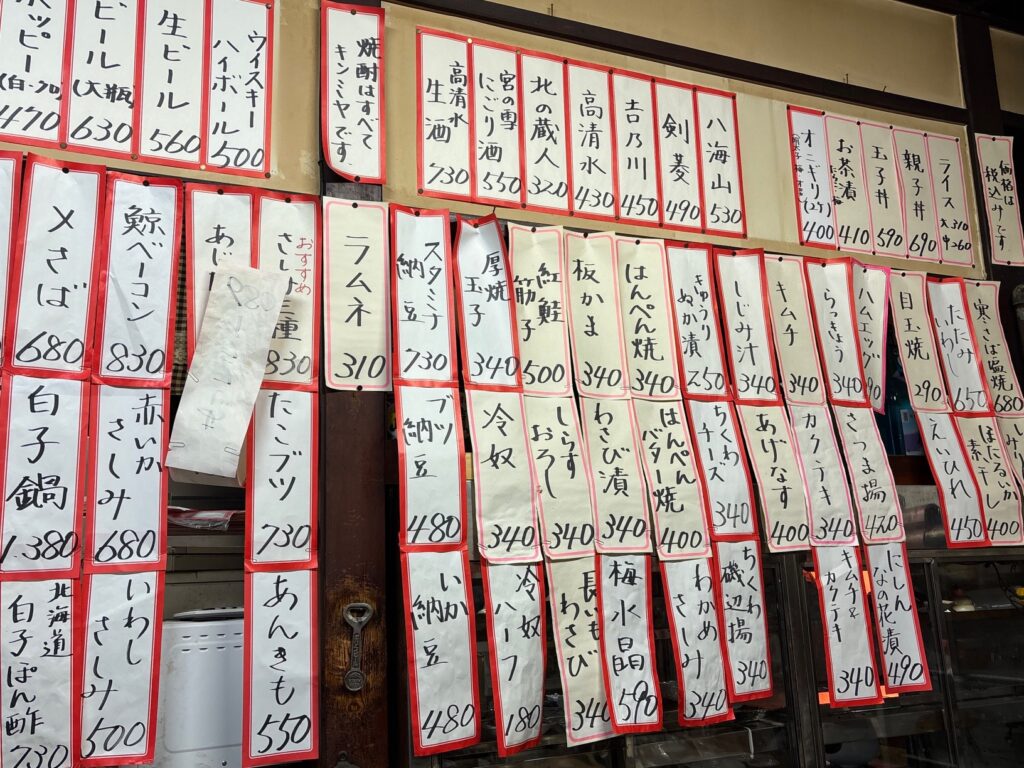 ホッピー (白・クロ) 470
ビール (大瓶) 630
生ビール 560
ウイスキー ハイボール 500
焼酎はすべて キンミヤです
高清水 生酒 730
宮の雪 にごり酒 550
北の蔵人 320
高清水 430
吉乃川 450
剣菱 490
八海山 530
オニギリ(2ケ) 400
お茶漬 410
玉子丼 590
親子丼 690
ライス 大310 中260
価格は 税込みです
〆さば 680
鯨ベーコン 830
おすすめ
830
ラムネ 310
スタミナ 納豆 730
厚焼 玉子 340
紅鮭 筋子 500
板かま 340
はんぺん焼 340
きゅうり ぬか漬 250
しじみ汁 340
キムチ 340
らっきょう 340
ハムエッグ
目玉焼 290
たたみ いわし 650
寒さば塩焼 680
白子鍋 1.380
赤いか さしみ 680
たこブツ 730
ブツ 納豆 480
冷奴 340
しらす おろし 340
わさび漬 340
はんぺん バター焼 400
ちくわ チーズ 340
あげなす 400
カクテキ 340
さつま揚 420
えいひれ 450
ほたるいか 素干し 400
北海道 白子ぽん酢 730
いわし さしみ 500
あんきも 550
いか 納豆 480
冷奴 ハーフ 180
長いも わさび 340
梅水晶 590
わかめ さしみ 340
ちくわ 磯辺揚 340
キムチ& カクテキ 340
にしん なの花漬 490